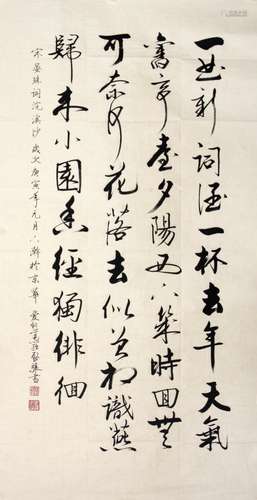 一曲新詞酒一杯去年天氣
舊亭臺夕陽西下幾時回無
可奈何花落去似曾相識燕
歸來小園香徑獨徘徊
宋晏殊詞浣溪沙 歲次庚寅年元月 於京華 愛新覺羅啟驤書